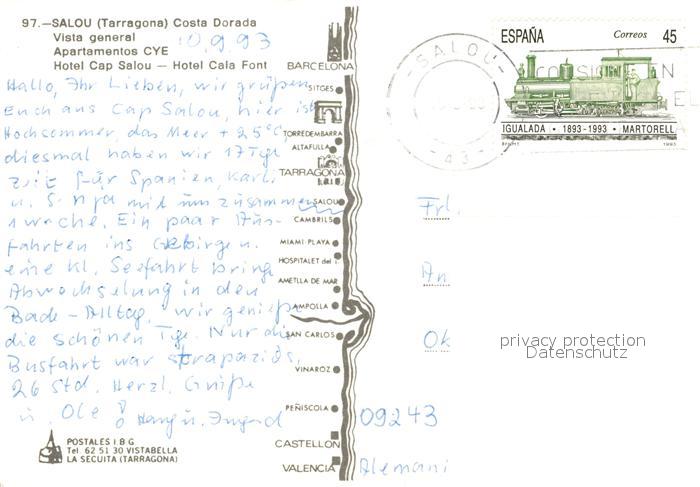 97.—SALOU (Tarragona) Costa Dorada
Vista general
Apartamentos CYE
Hotel Cap Salou — Hotel Cala Font
10.9.93
Hallo, Ihr Lieben, wir grüßen
Euch aus Cap Salou, hier ist
Hochsommer, das Meer + 25°C,
diesmal haben wir 17 Tge
Zeit für Spanien, Karli
u. mit uns zusammen
1 Woche. Ein paar Aus-
fahrten ins Gebirge u.
eine kl. Seefahrt bring
Abwechselung in den
Bade-Alltag, wir genieße
die schönen Tge. Nur die
Busfahrt war strapaziös,
26 Std. Herzl. Grüße
u. Olé
BARCELONA
SITGES
TORREDEMBARRA
ALTAFULLA
TARRAGONA
SALOU
CAMBRILS
MIAMI-PLAYA
HOSPITALET del I.
AMETLLA DE MAR
AMPOLLA
SAN CARLOS
VINAROZ
PEÑISCOLA
CASTELLON
VALENCIA
POSTALES I.B.G
Tel. 62 51 30 VISTABELLA
LA SECUITA (TARRAGONA)
-SALOU-
-43-
ESPAÑA Correos 45
IGUALADA · 1893-1993 · MARTORELL
1993
Frl.
An
Ok
privacy protection
Datenschutz
09243
Alemani